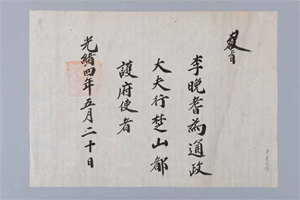 敎旨
李晩耆爲通政
大夫行楚山都
護府使者
光緖四年五月二十日